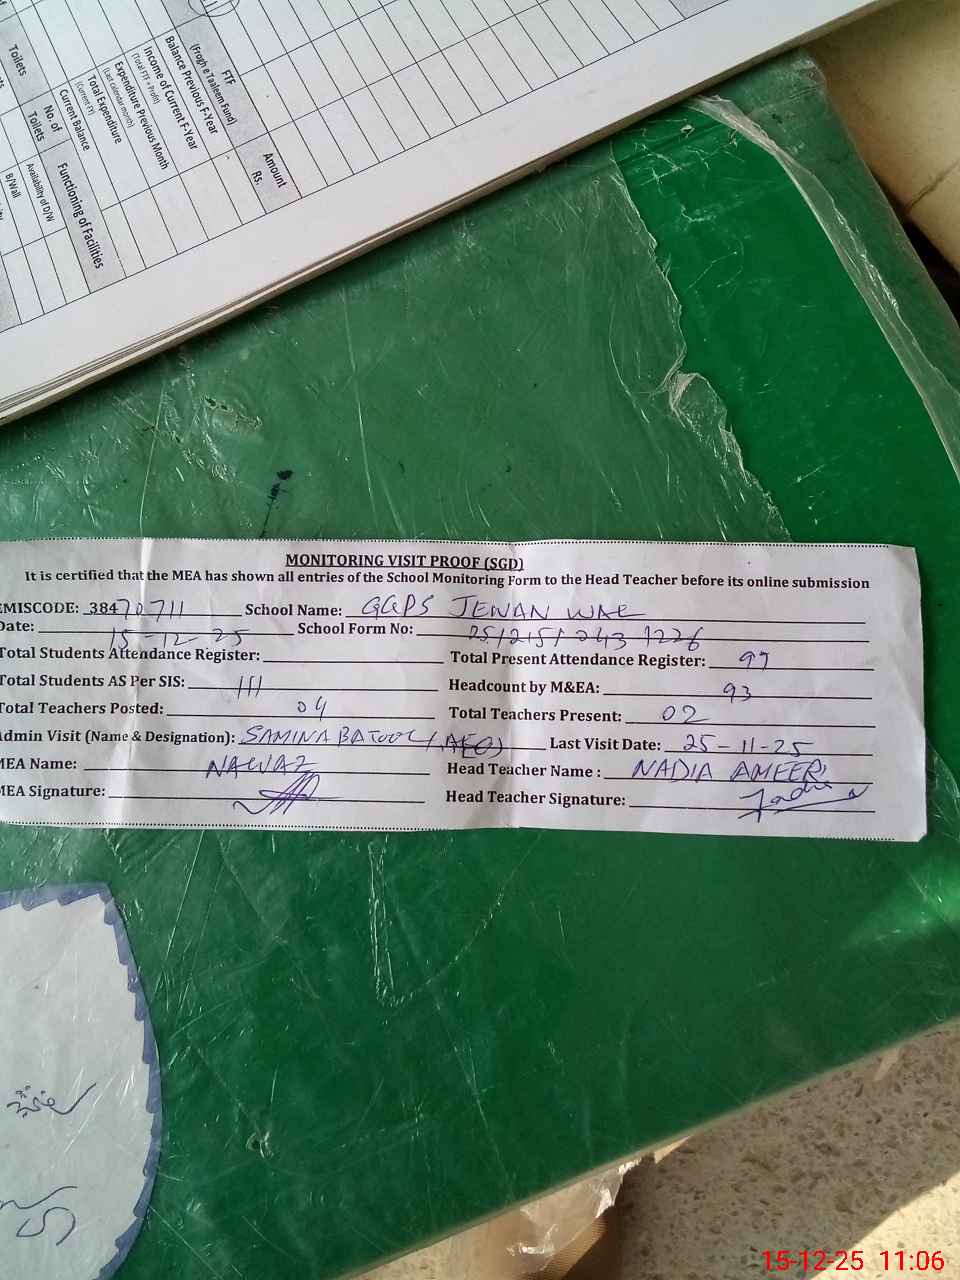 Toilets
No. of
Toilets
Functioning of Facilities
Availability of D/W
B/Wall
FTF
(Frogh e Taaleem Fund)
Amount
Rs.
Balance Previous F-Year
Income of Current F-Year
(Total FTF + Profit)
Expenditure Previous Month
(Last calendar month)
Total Expenditure
(Current FY)
Current Balance
MONITORING VISIT PROOF (SGD)
It is certified that the MEA has shown all entries of the School Monitoring Form to the Head Teacher before its online submission
EMISCODE: 38470711 School Name: GGPS JEWAN WAL
Date: 15-12-25 School Form No:
Total Students Attendance Register: Total Present Attendance Register: 97
Total Students AS Per SIS: 111 Headcount by M&EA: 93
Total Teachers Posted: 04 Total Teachers Present: 02
Admin Visit (Name & Designation): SAMINA BATOOL (AEO) Last Visit Date: 25-11-25
MEA Name: NAWAZ Head Teacher Name : NADIA AMEER
MEA Signature: Head Teacher Signature: Nadia
15-12-25 11:06